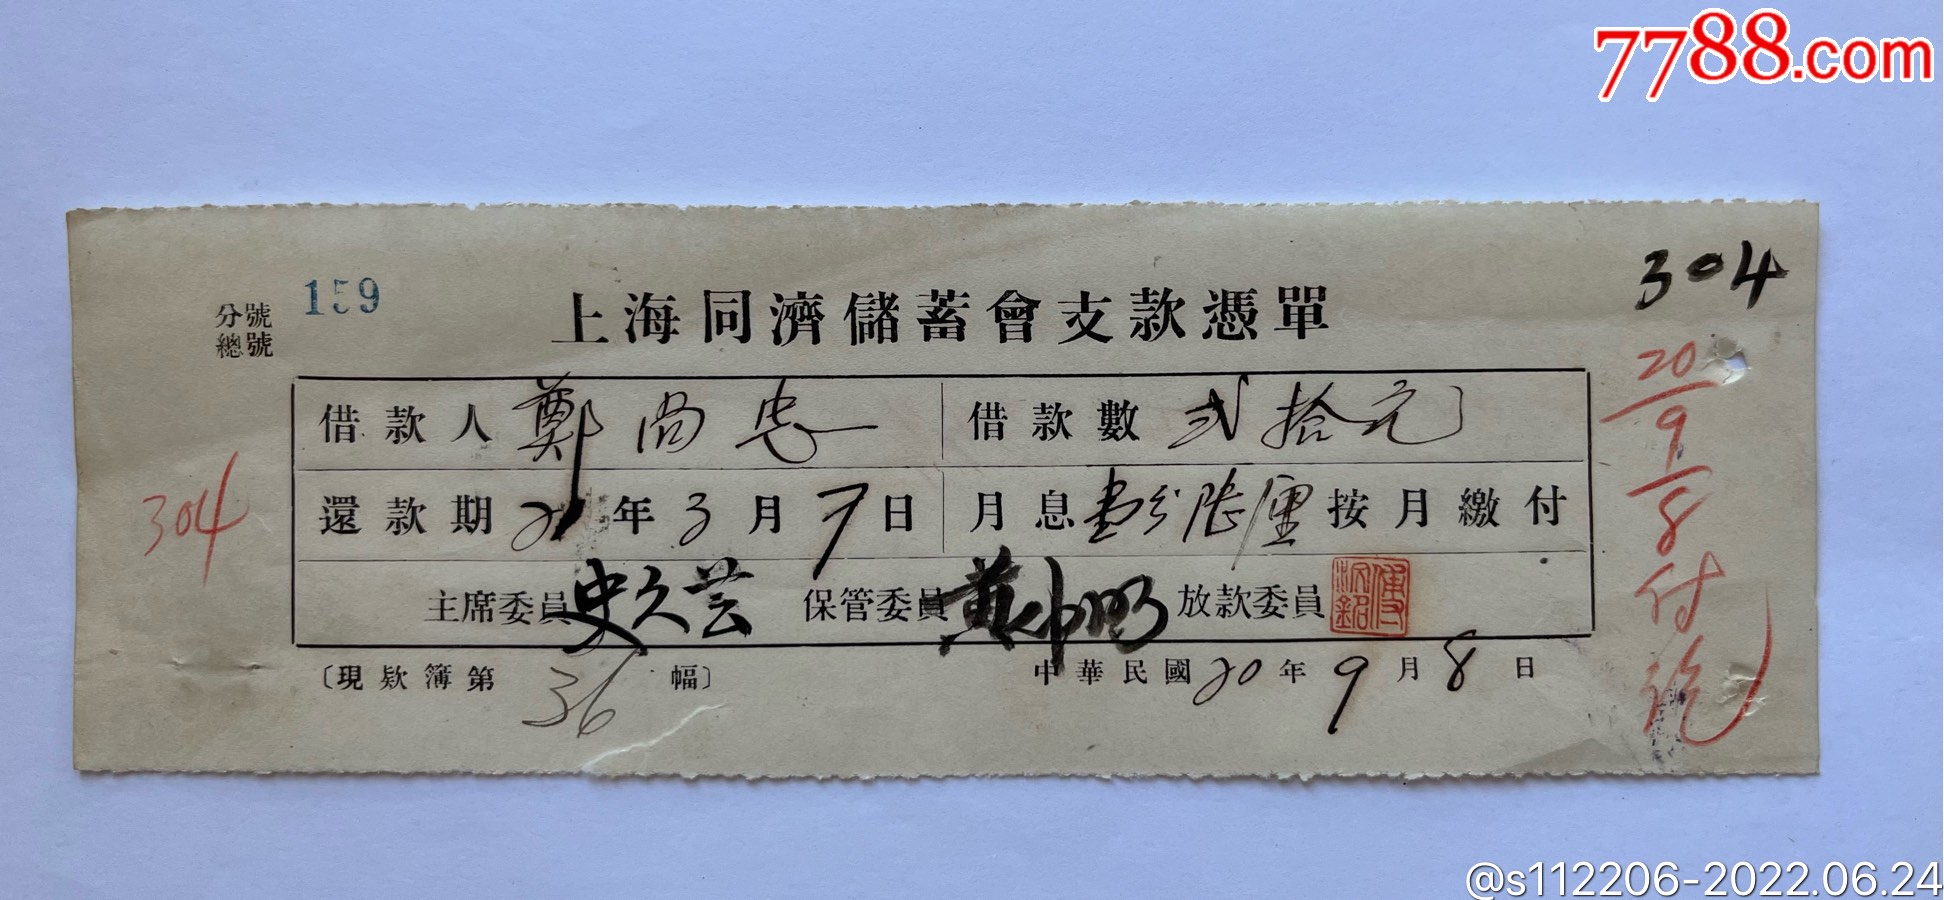 7788.com
304
159
分號
總號
上海同濟儲蓄會支款憑單
借款人 鄭尚忠 借款數 弍拾元
還款期 21年3月7日 月息壹分陸厘按月繳付
主席委員 史久芸 保管委員 黃 放款委員 傅
〔現款簿第 36 幅〕 中華民國20年9月8日
304
20/9/8付訖
@s112206-2022.06.24